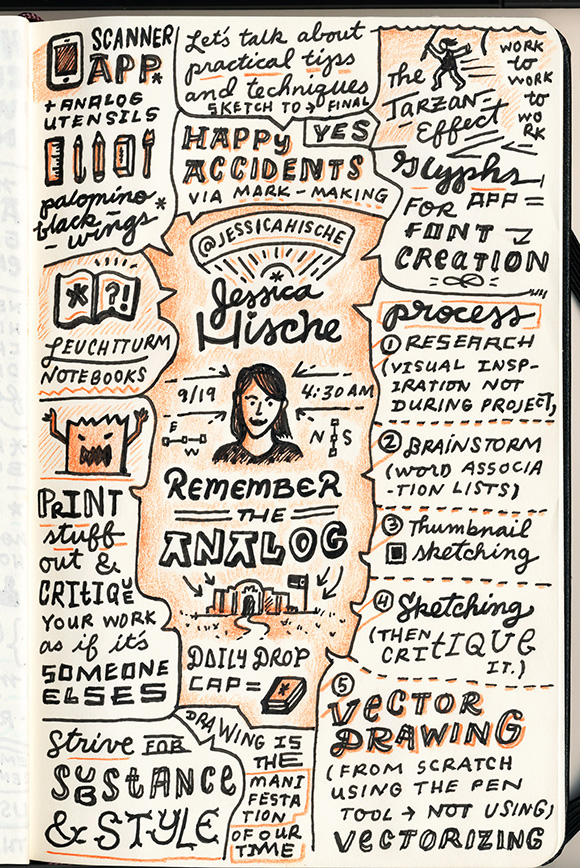 SCANNER
APP*
+ ANALOG
UTENSILS
palomino*
black-
-wings
*?!
LEUCHTTURM
NOTEBOOKS
PRINT
stuff
out &
CRITIQUE
YOUR WORK
as if it's
SOMEONE
ELSES
Strive FOR
SUBSTANCE
& STYLE
Let's talk about
practical tips
and techniques
SKETCH TO → FINAL
HAPPY YES
ACCIDENTS
VIA MARK-MAKING
@JESSICAHISCHE
*
Jessica
Hische
9/19 4:30 AM
E
W
N S
REMEMBER
THE
ANALOG
DAILY DROP
CAP = *
DRAWING IS
THE
MANI
FESTA
TION
OF OUR
TIME
The
Tarzan-
Effect
WORK
to
WORK
to
WO
RK
Glyphs
FOR APP =
FONT
CREATION
process
1 RESEARCH
(VISUAL INSP-
IRATION NOT
DURING PROJECT)
2 BRAINSTORM
(WORD ASSOCIA
-TION LISTS)
3 Thumbnail
sketching
4 Sketching
(THEN
CRITIQUE
IT.)
5
VECTOR
DRAWING
(FROM SCRATCH
USING THE PEN
TOOL → NOT USING)
VECTORIZING